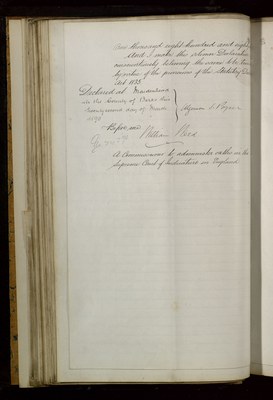 One thousand eight hundred and eighty
And I make this solemn Declaration
conscientiously believing the same to be true
by virtue of the provisions of the Statutory Dec
Act 1835.
Declared at
in the County of this
Twenty second day of
Before me
William
A Commissioner to administer oaths in the
Supreme Court of Judicature in England